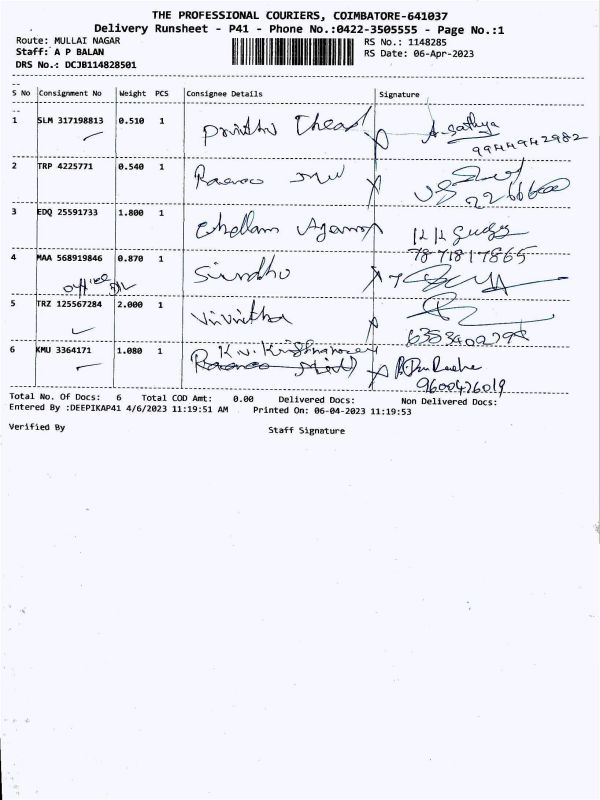 THE PROFESSIONAL COURIERS, COIMBATORE-641037
Delivery Runsheet - P41 - Phone No.:0422-3505555 - Page No.:1
Route: MULLAI NAGAR RS No.: 1148285
Staff: A P BALAN RS Date: 06-Apr-2023
DRS No.: DCJB114828501
S No Consignment No Weight PCS Consignee Details Signature
1 SLM 317198813 0.510 1 A. Sathya
9944942982
2 TRP 4225771 0.540 1
3 EDQ 25591733 1.800 1 Chellam
7871817865
4 MAA 568919846 0.870 1 Sindho
office
5 TRZ 125567284 2.000 1
6 KMU 3364171 1.080 1 K.V.
9600426019
Total No. Of Docs: 6 Total COD Amt: 0.00 Delivered Docs: Non Delivered Docs:
Entered By :DEEPIKAP41 4/6/2023 11:19:51 AM Printed On: 06-04-2023 11:19:53
Verified By Staff Signature